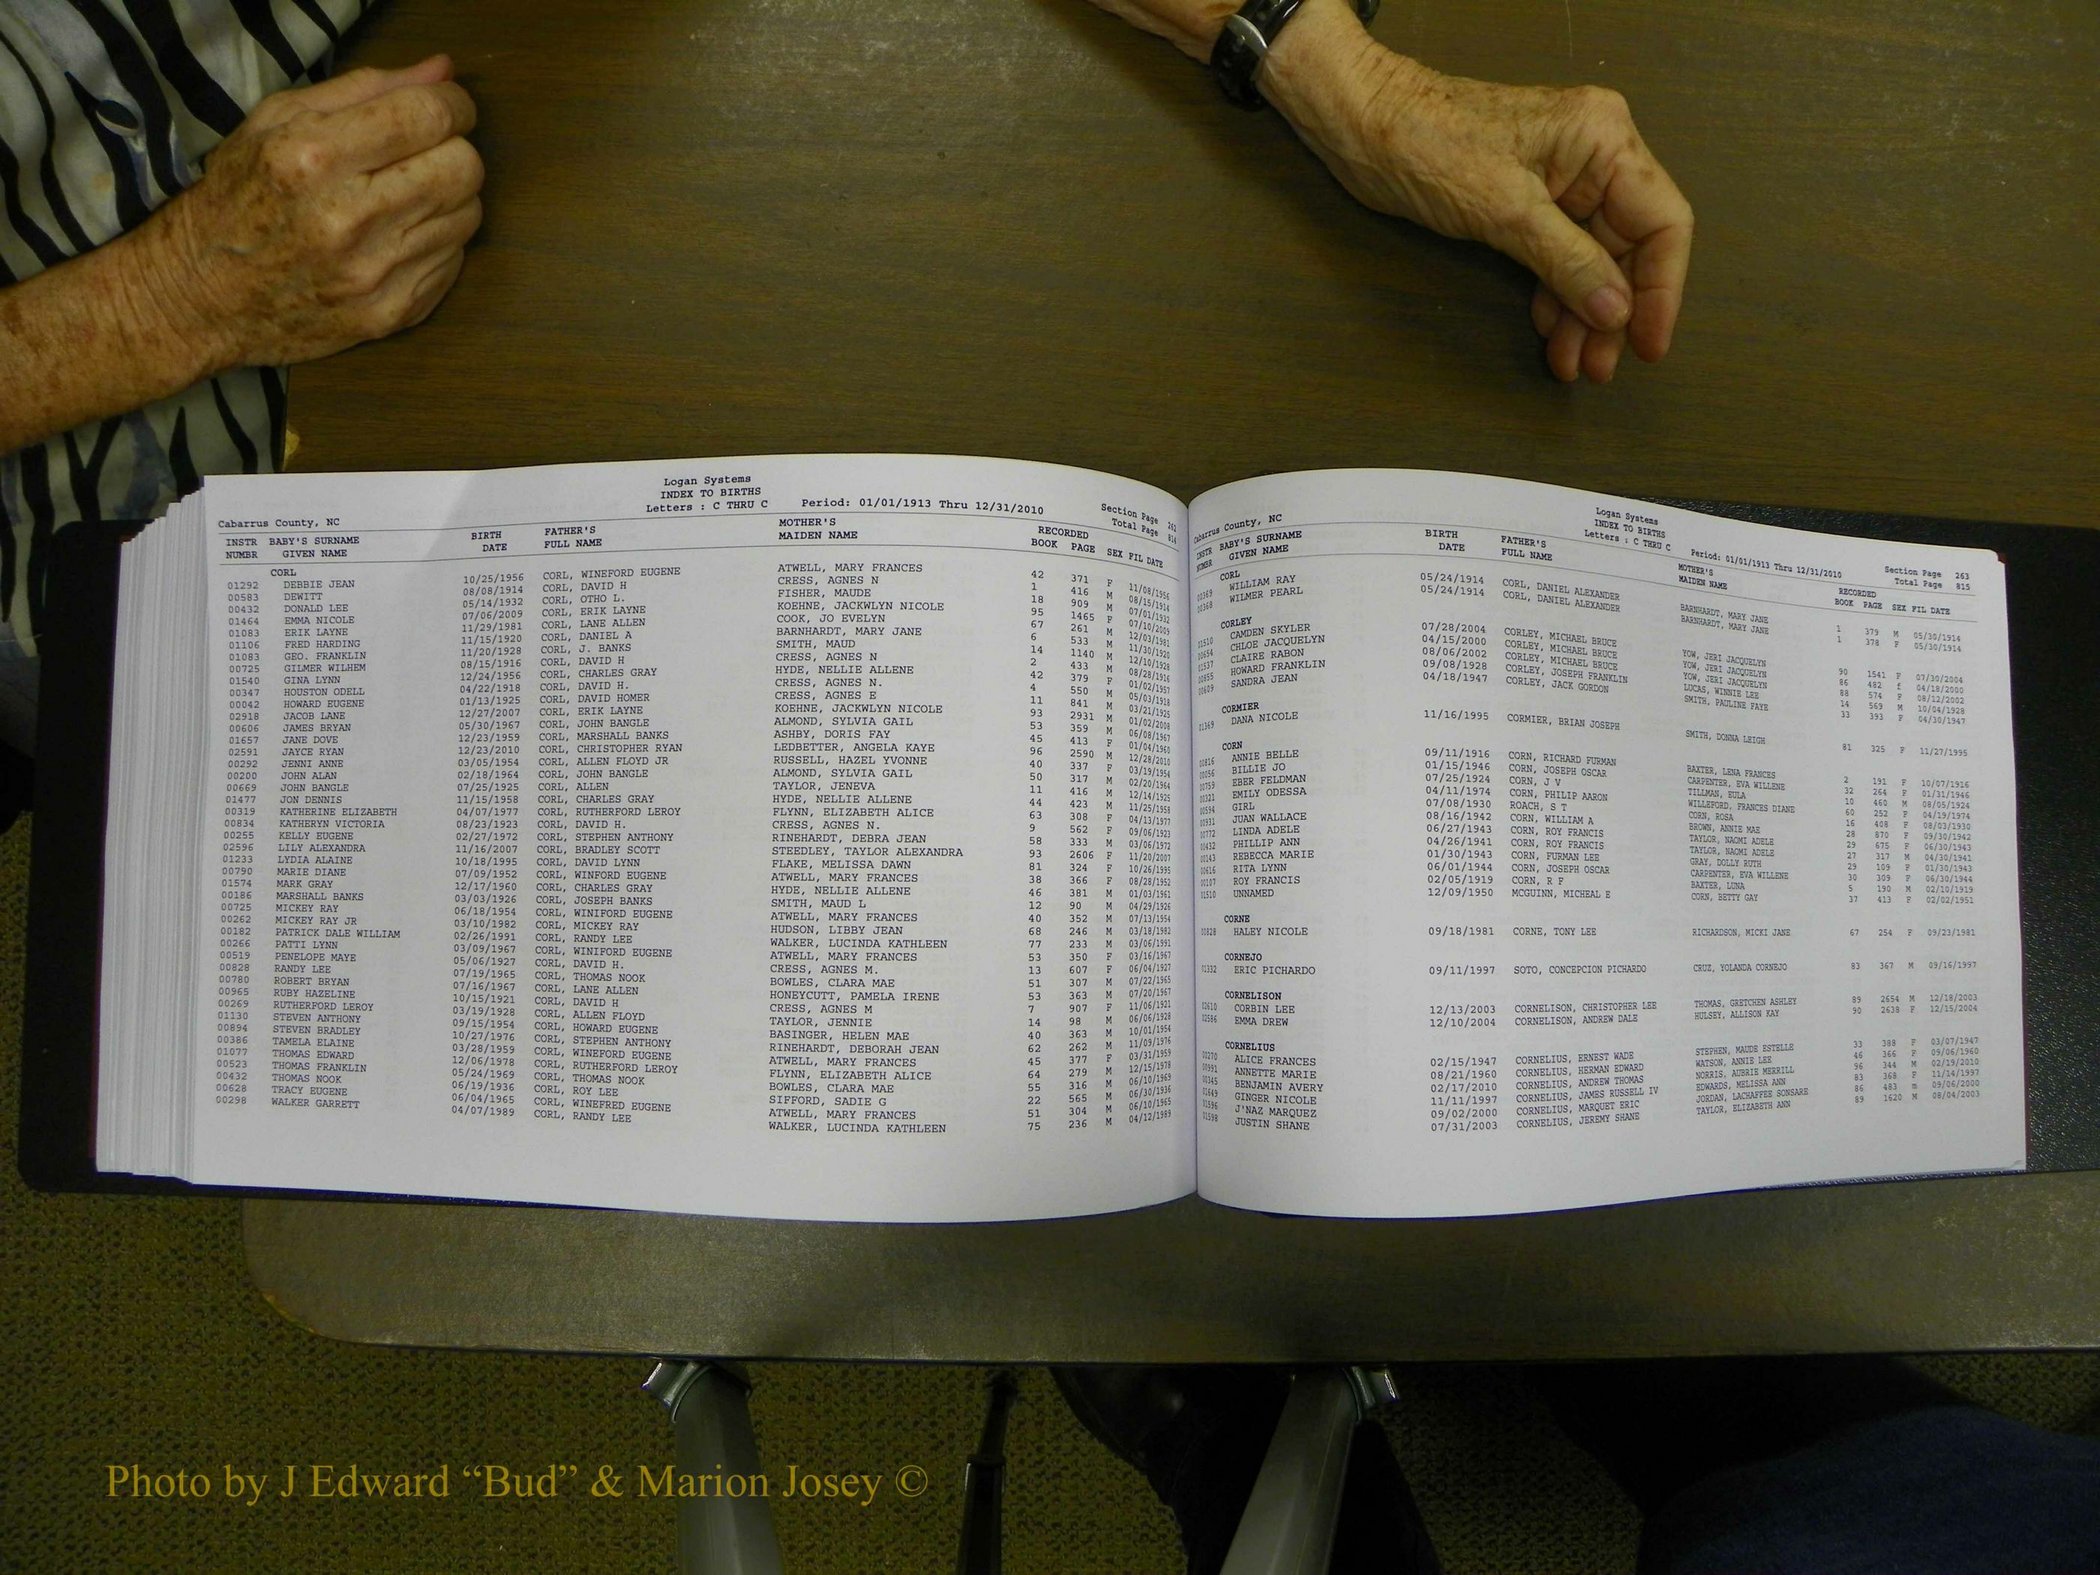 Logan Systems
INDEX TO BIRTHS
Letters : C THRU C Period: 01/01/1913 Thru 12/31/2010
Section Page 262
Total Page 814
Cabarrus County, NC
INSTR BABY'S SURNAME BIRTH FATHER'S MOTHER'S RECORDED
NUMBR GIVEN NAME DATE FULL NAME MAIDEN NAME BOOK PAGE SEX FIL DATE
CORL
01292 DEBBIE JEAN 10/25/1956 CORL, WINEFORD EUGENE ATWELL, MARY FRANCES 42 371 F 11/08/1956
00583 DEWITT 08/08/1914 CORL, DAVID H CRESS, AGNES N 1 416 M 08/15/1914
00432 DONALD LEE 05/14/1932 CORL, OTHO L. FISHER, MAUDE 18 909 M 07/01/1932
01464 EMMA NICOLE 07/06/2009 CORL, ERIK LAYNE KOEHNE, JACKWLYN NICOLE 95 1465 F 07/10/2009
01083 ERIK LAYNE 11/29/1981 CORL, LANE ALLEN COOK, JO EVELYN 67 261 M 12/03/1981
01106 FRED HARDING 11/15/1920 CORL, DANIEL A BARNHARDT, MARY JANE 6 533 M 11/30/1920
01083 GEO. FRANKLIN 11/20/1928 CORL, J. BANKS SMITH, MAUD 14 1140 M 12/10/1928
00725 GILMER WILHEM 08/15/1916 CORL, DAVID H CRESS, AGNES N 2 433 M 08/28/1916
01540 GINA LYNN 12/24/1956 CORL, CHARLES GRAY HYDE, NELLIE ALLENE 42 379 F 01/02/1957
00347 HOUSTON ODELL 04/22/1918 CORL, DAVID H. CRESS, AGNES N. 4 550 M 05/03/1918
00042 HOWARD EUGENE 01/13/1925 CORL, DAVID HOMER CRESS, AGNES E 11 841 M 03/21/1925
02918 JACOB LANE 12/27/2007 CORL, ERIK LAYNE KOEHNE, JACKWLYN NICOLE 93 2931 M 01/02/2008
00606 JAMES BRYAN 05/30/1967 CORL, JOHN BANGLE ALMOND, SYLVIA GAIL 53 359 M 06/08/1967
01657 JANE DOVE 12/23/1959 CORL, MARSHALL BANKS ASHBY, DORIS FAY 45 413 F 01/04/1960
02591 JAYCE RYAN 12/23/2010 CORL, CHRISTOPHER RYAN LEDBETTER, ANGELA KAYE 96 2590 M 12/28/2010
00292 JENNI ANNE 03/05/1954 CORL, ALLEN FLOYD JR RUSSELL, HAZEL YVONNE 40 337 F 03/19/1954
00200 JOHN ALAN 02/18/1964 CORL, JOHN BANGLE ALMOND, SYLVIA GAIL 50 317 M 02/20/1964
00669 JOHN BANGLE 07/25/1925 CORL, ALLEN TAYLOR, JENEVA 11 416 M 12/14/1925
01477 JON DENNIS 11/15/1958 CORL, CHARLES GRAY HYDE, NELLIE ALLENE 44 423 M 11/25/1958
00319 KATHERINE ELIZABETH 04/07/1977 CORL, RUTHERFORD LEROY FLYNN, ELIZABETH ALICE 63 308 F 04/13/1977
00834 KATHERYN VICTORIA 08/23/1923 CORL, DAVID H. CRESS, AGNES N. 9 562 F 09/06/1923
00255 KELLY EUGENE 02/27/1972 CORL, STEPHEN ANTHONY RINEHARDT, DEBRA JEAN 58 333 M 03/06/1972
02596 LILY ALEXANDRA 11/16/2007 CORL, BRADLEY SCOTT STEEDLEY, TAYLOR ALEXANDRA 93 2606 F 11/20/2007
01233 LYDIA ALAINE 10/18/1995 CORL, DAVID LYNN FLAKE, MELISSA DAWN 81 324 F 10/26/1995
00790 MARIE DIANE 07/09/1952 CORL, WINFORD EUGENE ATWELL, MARY FRANCES 38 366 F 08/28/1952
01574 MARK GRAY 12/17/1960 CORL, CHARLES GRAY HYDE, NELLIE ALLENE 46 381 M 01/03/1961
00186 MARSHALL BANKS 03/03/1926 CORL, JOSEPH BANKS SMITH, MAUD L 12 90 M 04/29/1926
00725 MICKEY RAY 06/18/1954 CORL, WINIFORD EUGENE ATWELL, MARY FRANCES 40 352 M 07/13/1954
00262 MICKEY RAY JR 03/10/1982 CORL, MICKEY RAY HUDSON, LIBBY JEAN 68 246 M 03/18/1982
00182 PATRICK DALE WILLIAM 02/26/1991 CORL, RANDY LEE WALKER, LUCINDA KATHLEEN 77 233 M 03/06/1991
00266 PATTI LYNN 03/09/1967 CORL, WINIFORD EUGENE ATWELL, MARY FRANCES 53 350 F 03/16/1967
00519 PENELOPE MAYE 05/06/1927 CORL, DAVID H. CRESS, AGNES M. 13 607 F 06/04/1927
00828 RANDY LEE 07/19/1965 CORL, THOMAS NOOK BOWLES, CLARA MAE 51 307 M 07/22/1965
00780 ROBERT BRYAN 07/16/1967 CORL, LANE ALLEN HONEYCUTT, PAMELA IRENE 53 363 M 07/20/1967
00965 RUBY HAZELINE 10/15/1921 CORL, DAVID H CRESS, AGNES M 7 907 F 11/06/1921
00269 RUTHERFORD LEROY 03/19/1928 CORL, ALLEN FLOYD TAYLOR, JENNIE 14 98 M 06/06/1928
01130 STEVEN ANTHONY 09/15/1954 CORL, HOWARD EUGENE BASINGER, HELEN MAE 40 363 M 10/01/1954
00894 STEVEN BRADLEY 10/27/1976 CORL, STEPHEN ANTHONY RINEHARDT, DEBORAH JEAN 62 262 M 11/09/1976
00386 TAMELA ELAINE 03/28/1959 CORL, WINEFORD EUGENE ATWELL, MARY FRANCES 45 377 F 03/31/1959
01077 THOMAS EDWARD 12/06/1978 CORL, RUTHERFORD LEROY FLYNN, ELIZABETH ALICE 64 279 M 12/15/1978
00523 THOMAS FRANKLIN 05/24/1969 CORL, THOMAS NOOK BOWLES, CLARA MAE 55 316 M 06/10/1969
00432 THOMAS NOOK 06/19/1936 CORL, ROY LEE SIFFORD, SADIE G 22 565 M 06/30/1936
00628 TRACY EUGENE 06/04/1965 CORL, WINEFRED EUGENE ATWELL, MARY FRANCES 51 304 M 06/10/1965
00298 WALKER GARRETT 04/07/1989 CORL, RANDY LEE WALKER, LUCINDA KATHLEEN 75 236 M 04/12/1989
Logan Systems
INDEX TO BIRTHS
Letters : C THRU C Period: 01/01/1913 Thru 12/31/2010
Section Page 263
Total Page 815
Cabarrus County, NC
INSTR BABY'S SURNAME BIRTH FATHER'S MOTHER'S RECORDED
NUMBR GIVEN NAME DATE FULL NAME MAIDEN NAME BOOK PAGE SEX FIL DATE
CORL
00369 WILLIAM RAY 05/24/1914 CORL, DANIEL ALEXANDER BARNHARDT, MARY JANE 1 379 M 05/30/1914
00368 WILMER PEARL 05/24/1914 CORL, DANIEL ALEXANDER BARNHARDT, MARY JANE 1 378 F 05/30/1914
CORLEY
01510 CAMDEN SKYLER 07/28/2004 CORLEY, MICHAEL BRUCE YOW, JERI JACQUELYN 90 1541 F 07/30/2004
00654 CHLOE JACQUELYN 04/15/2000 CORLEY, MICHAEL BRUCE YOW, JERI JACQUELYN 86 482 f 04/18/2000
01537 CLAIRE RABON 08/06/2002 CORLEY, MICHAEL BRUCE YOW, JERI JACQUELYN 88 574 F 08/12/2002
00855 HOWARD FRANKLIN 09/08/1928 CORLEY, JOSEPH FRANKLIN LUCAS, WINNIE LEE 14 569 M 10/04/1928
00609 SANDRA JEAN 04/18/1947 CORLEY, JACK GORDON SMITH, PAULINE FAYE 33 393 F 04/30/1947
CORMIER
01369 DANA NICOLE 11/16/1995 CORMIER, BRIAN JOSEPH SMITH, DONNA LEIGH 81 325 F 11/27/1995
CORN
00816 ANNIE BELLE 09/11/1916 CORN, RICHARD FURMAN BAXTER, LENA FRANCES 2 191 F 10/07/1916
00056 BILLIE JO 01/15/1946 CORN, JOSEPH OSCAR CARPENTER, EVA WILLENE 32 264 F 01/31/1946
00759 EBER FELDMAN 07/25/1924 CORN, J V TILLMAN, EULA 10 460 M 08/05/1924
00321 EMILY ODESSA 04/11/1974 CORN, PHILIP AARON WILLEFORD, FRANCES DIANE 60 252 F 04/19/1974
00594 GIRL 07/08/1930 ROACH, S T CORN, ROSA 16 408 F 08/03/1930
00931 JUAN WALLACE 08/16/1942 CORN, WILLIAM A BROWN, ANNIE MAE 28 870 F 09/30/1942
00772 LINDA ADELE 06/27/1943 CORN, ROY FRANCIS TAYLOR, NAOMI ADELE 29 675 F 06/30/1943
00432 PHILLIP ANN 04/26/1941 CORN, ROY FRANCIS TAYLOR, NAOMI ADELE 27 317 M 04/30/1941
00143 REBECCA MARIE 01/30/1943 CORN, FURMAN LEE GRAY, DOLLY RUTH 29 109 F 01/30/1943
00616 RITA LYNN 06/01/1944 CORN, JOSEPH OSCAR CARPENTER, EVA WILLENE 30 309 F 06/30/1944
00107 ROY FRANCIS 02/05/1919 CORN, R F BAXTER, LUNA 5 190 M 02/10/1919
01510 UNNAMED 12/09/1950 MCGUINN, MICHEAL E CORN, BETTY GAY 37 413 F 02/02/1951
CORNE
00828 HALEY NICOLE 09/18/1981 CORNE, TONY LEE RICHARDSON, MICKI JANE 67 254 F 09/23/1981
CORNEJO
01332 ERIC PICHARDO 09/11/1997 SOTO, CONCEPCION PICHARDO CRUZ, YOLANDA CORNEJO 83 367 M 09/16/1997
CORNELISON
02610 CORBIN LEE 12/13/2003 CORNELISON, CHRISTOPHER LEE THOMAS, GRETCHEN ASHLEY 89 2654 M 12/18/2003
02586 EMMA DREW 12/10/2004 CORNELISON, ANDREW DALE HULSEY, ALLISON KAY 90 2638 F 12/15/2004
CORNELIUS
00270 ALICE FRANCES 02/15/1947 CORNELIUS, ERNEST WADE STEPHEN, MAUDE ESTELLE 33 388 F 03/07/1947
00991 ANNETTE MARIE 08/21/1960 CORNELIUS, HERMAN EDWARD WATSON, ANNIE LEE 46 366 F 09/06/1960
00345 BENJAMIN AVERY 02/17/2010 CORNELIUS, ANDREW THOMAS NORRIS, AUBRIE MERRILL 96 344 M 02/19/2010
01649 GINGER NICOLE 11/11/1997 CORNELIUS, JAMES RUSSELL IV EDWARDS, MELISSA ANN 83 368 F 11/14/1997
01596 J'NAZ MARQUEZ 09/02/2000 CORNELIUS, MARQUET ERIC JORDAN, LACHAFFEE SONSARE 86 483 m 09/06/2000
01598 JUSTIN SHANE 07/31/2003 CORNELIUS, JEREMY SHANE TAYLOR, ELIZABETH ANN 89 1620 M 08/04/2003
Photo by J Edward “Bud” & Marion Josey ©